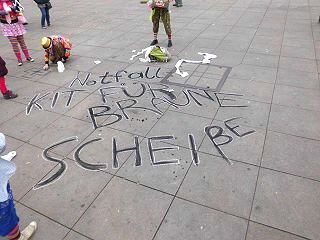 Notfall
KIT FÜR
BRAUNE
SCHEIßE